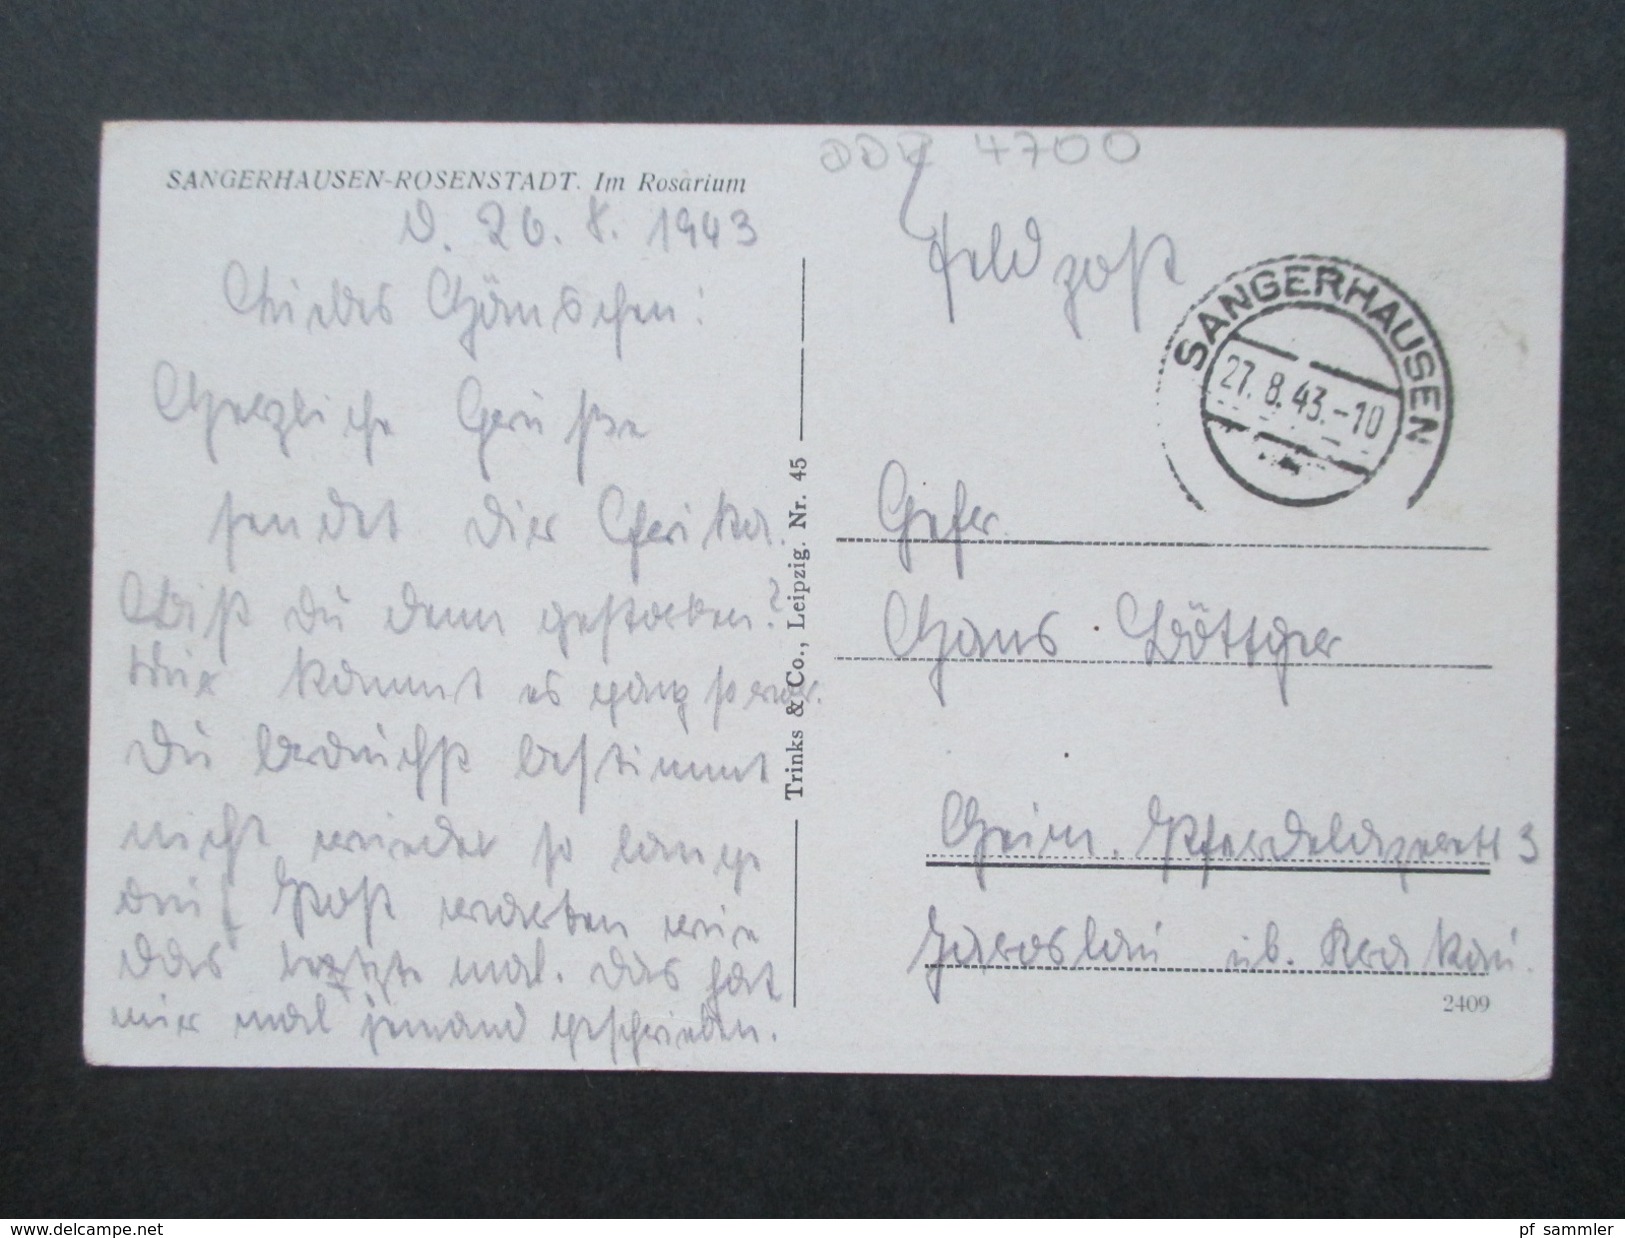 SANGERHAUSEN-ROSENSTADT. Im Rosarium
D. 26. 8. 1943
Liebes Hänschen!
Herzliche Grüße
sendet Dir Erika.
Bist Du denn gestorben?
Mir kommt es ganz so vor.
Du brauchst bestimmt
nicht wieder so lange
auf Post warten wie
das letzte mal. Das hat
mir mal jemand geschrieben.
Trinks & Co., Leipzig. Nr. 45
DDR 4700
Feldpost
SANGERHAUSEN
27.8.43.-10
Gefr.
Hans Böttger
Heim. Pferdelazarett 3
Jaroslau üb. Krakau.
2409
www.delcampe.net
pf_sammler